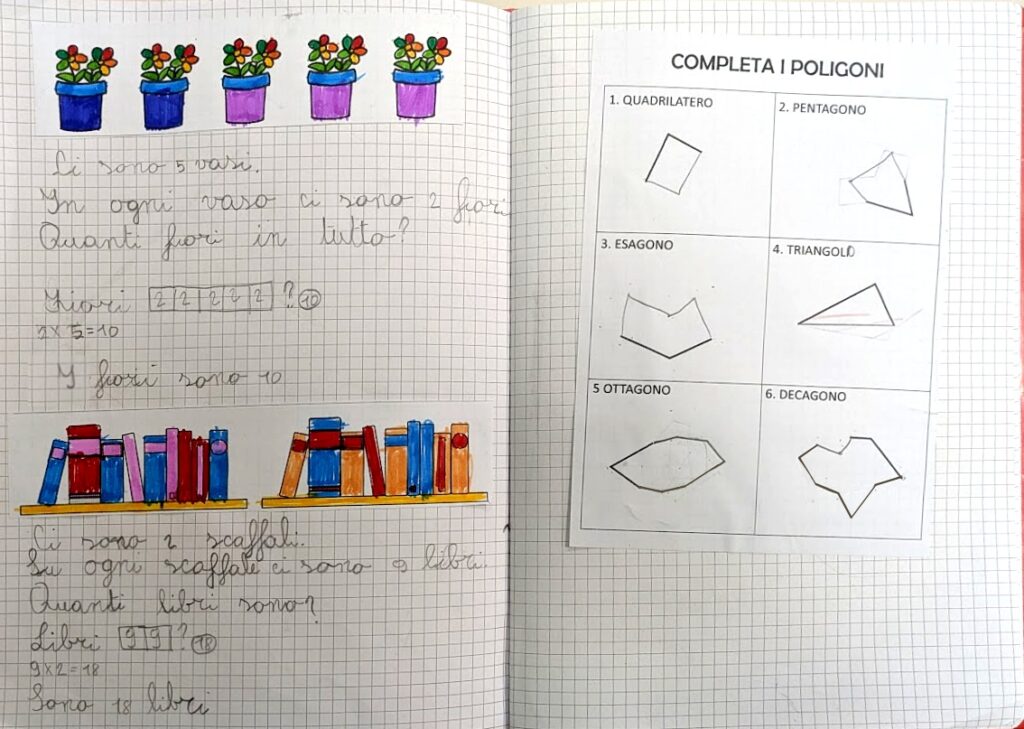 Ci sono 5 vasi.
In ogni vaso ci sono 2 fiori
Quanti fiori in tutto?
Fiori 2 2 2 2 2 ? 10
2 x 5 = 10
I fiori sono 10
Ci sono 2 scaffali.
Su ogni scaffale ci sono 9 libri.
Quanti libri sono?
Libri 9 9 ? 18
9 x 2 = 18
Sono 18 libri
COMPLETA I POLIGONI
1. QUADRILATERO
2. PENTAGONO
3. ESAGONO
4. TRIANGOLO
5 OTTAGONO
6. DECAGONO